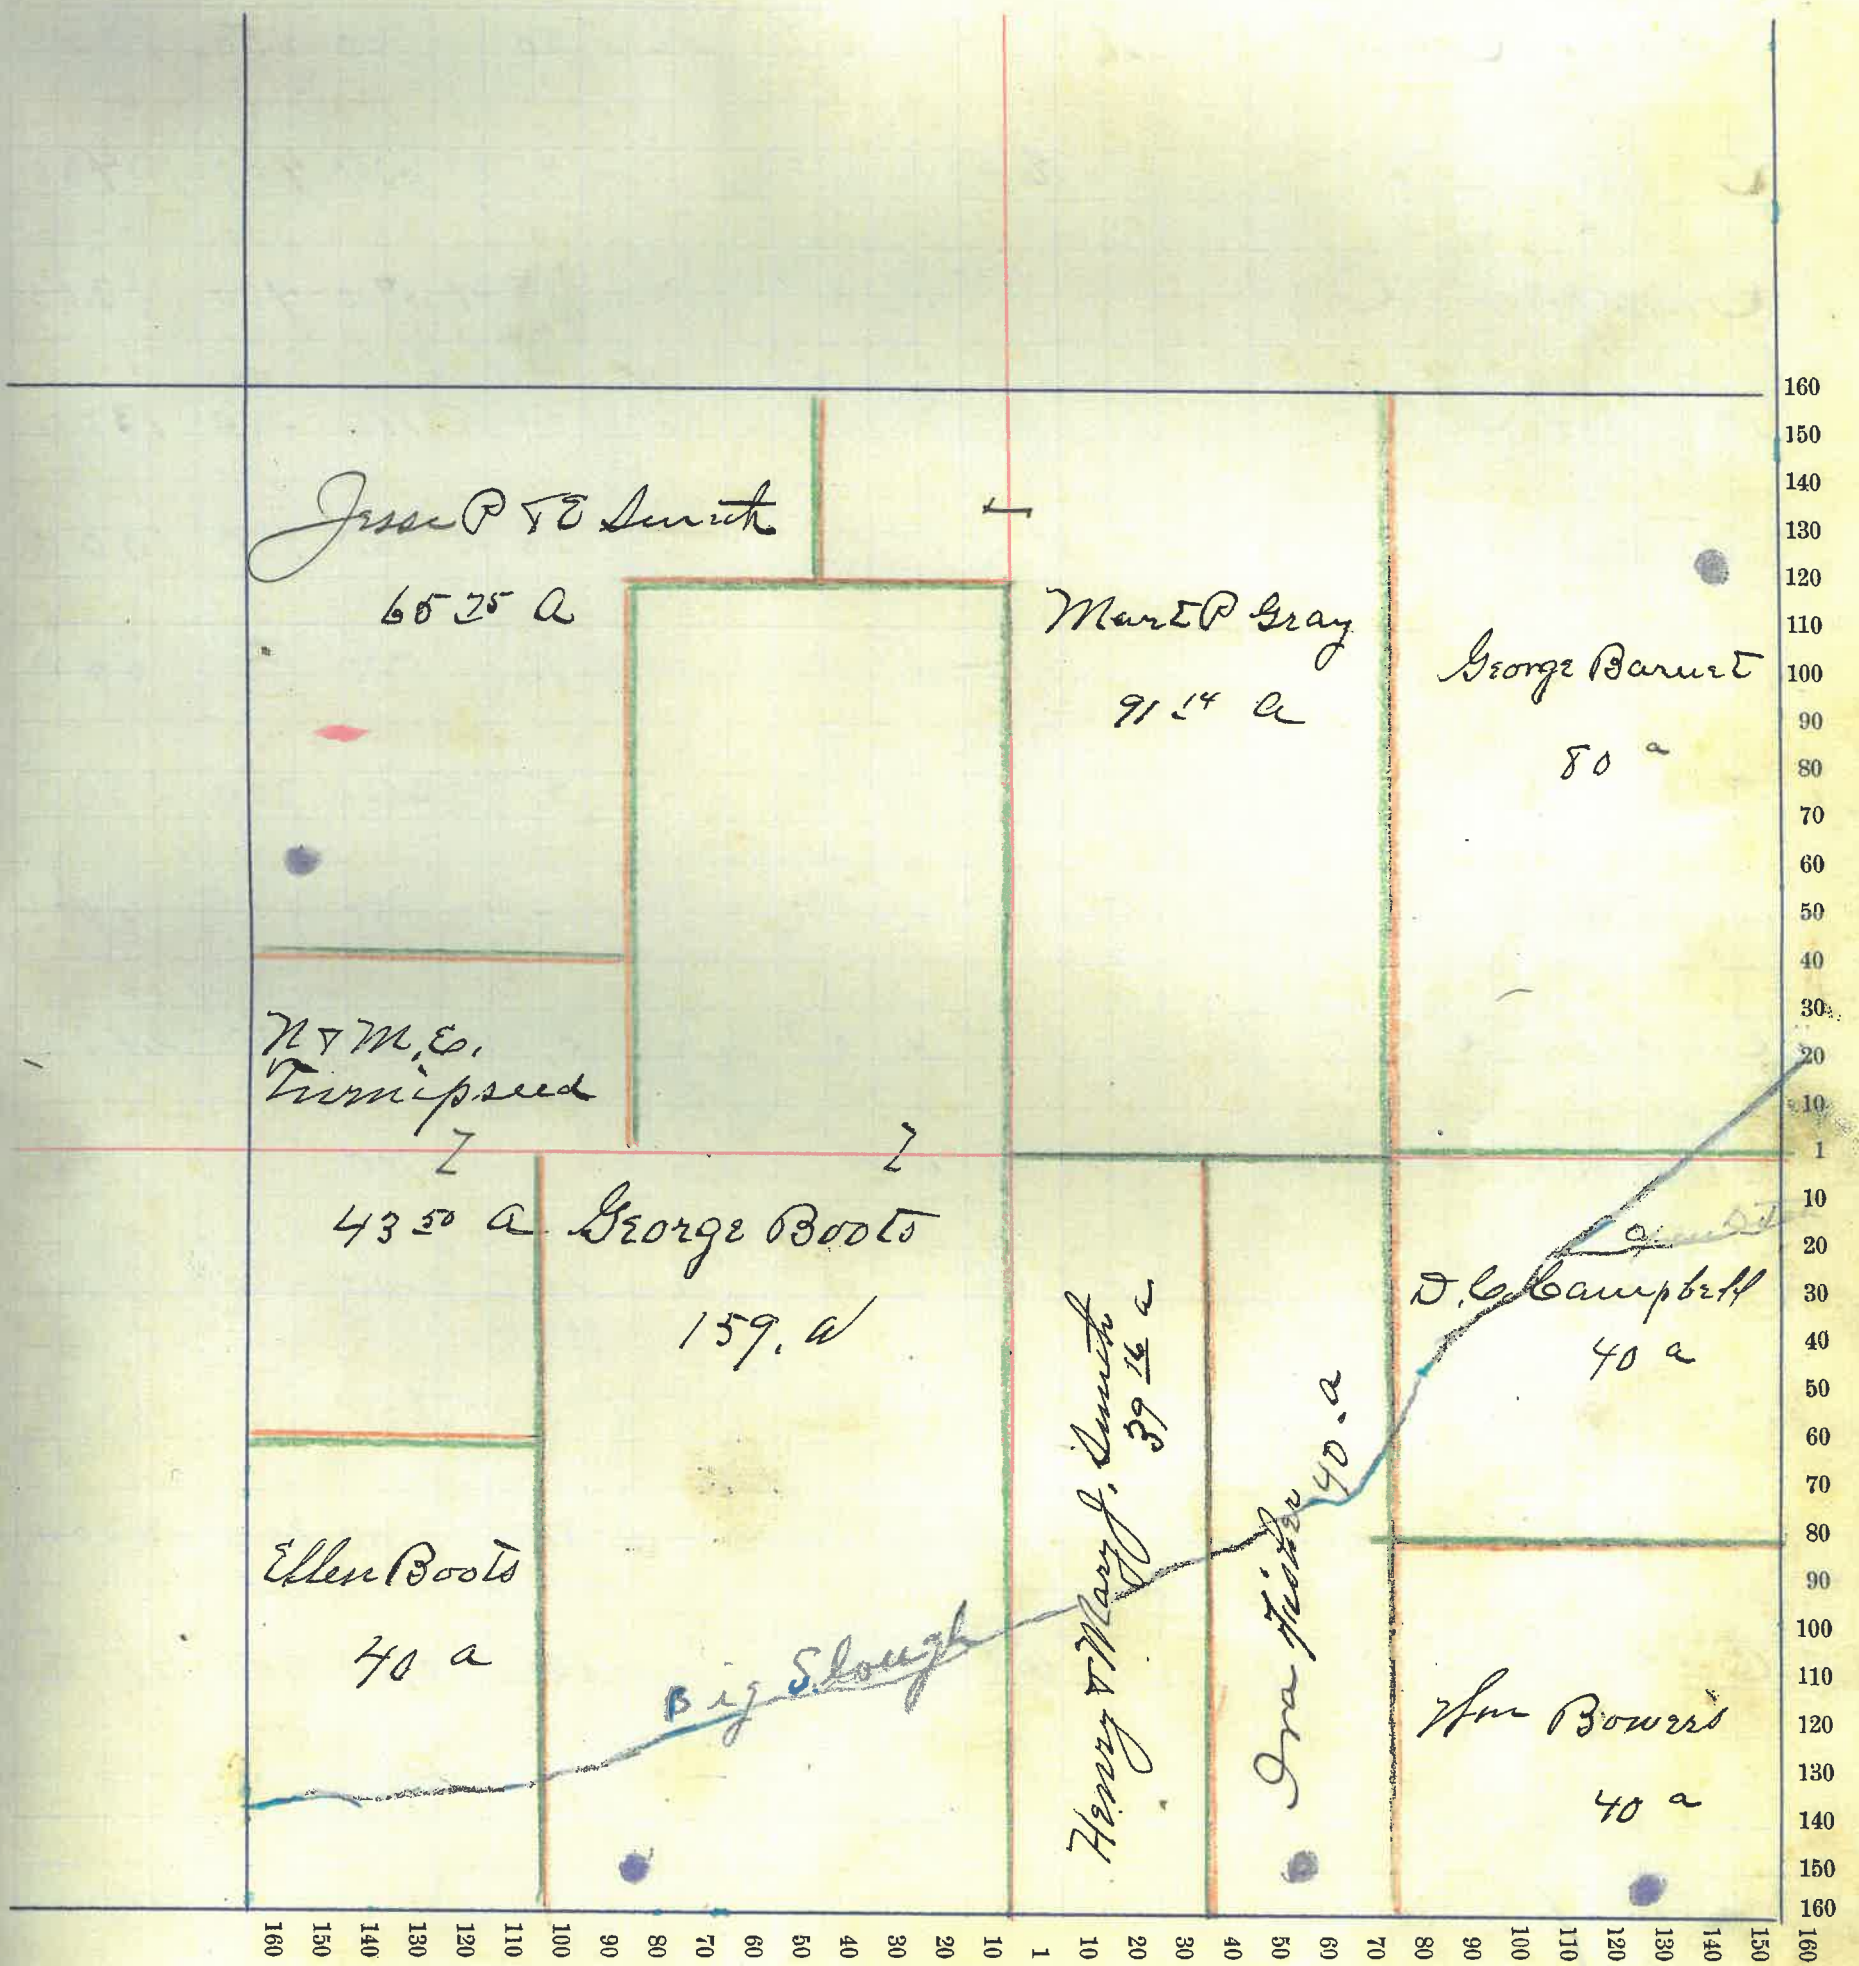 Jesse P & E Smith
65 25 A
Mart P Gray
91 14 a
George Barnet
80 a
N & M. E.
Turnipseed
43 50 a
George Boots
159. a
D. C. Campbell
40 a
Henry & Mary J. Smith
39 16 a
Ira Fisher
40. a
Ellen Boots
40 a
Big Slough
Wm Bowers
40 a
160
150
140
130
120
110
100
90
80
70
60
50
40
30
20
10
1
10
20
30
40
50
60
70
80
90
100
110
120
130
140
150
160
160 150 140 130 120 110 100 90 80 70 60 50 40 30 20 10 1 10 20 30 40 50 60 70 80 90 100 110 120 130 140 150 160